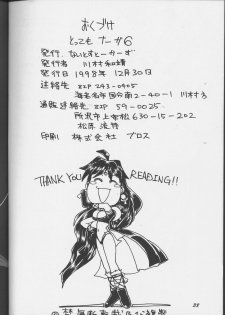 おくづけ
とっても ナーガ6
発行. ないとすとーかーず
発行者 川村和靖
発行日 1998年 12月30日
連絡先 ZIP 243-0405
海老名市国分南2-40-1 川村方
通販連絡先 ZIP 59-0025
所沢市上安松630-15-202
松原
印刷 株式会社 プロス
THANK YOU READING!!
禁無断転載